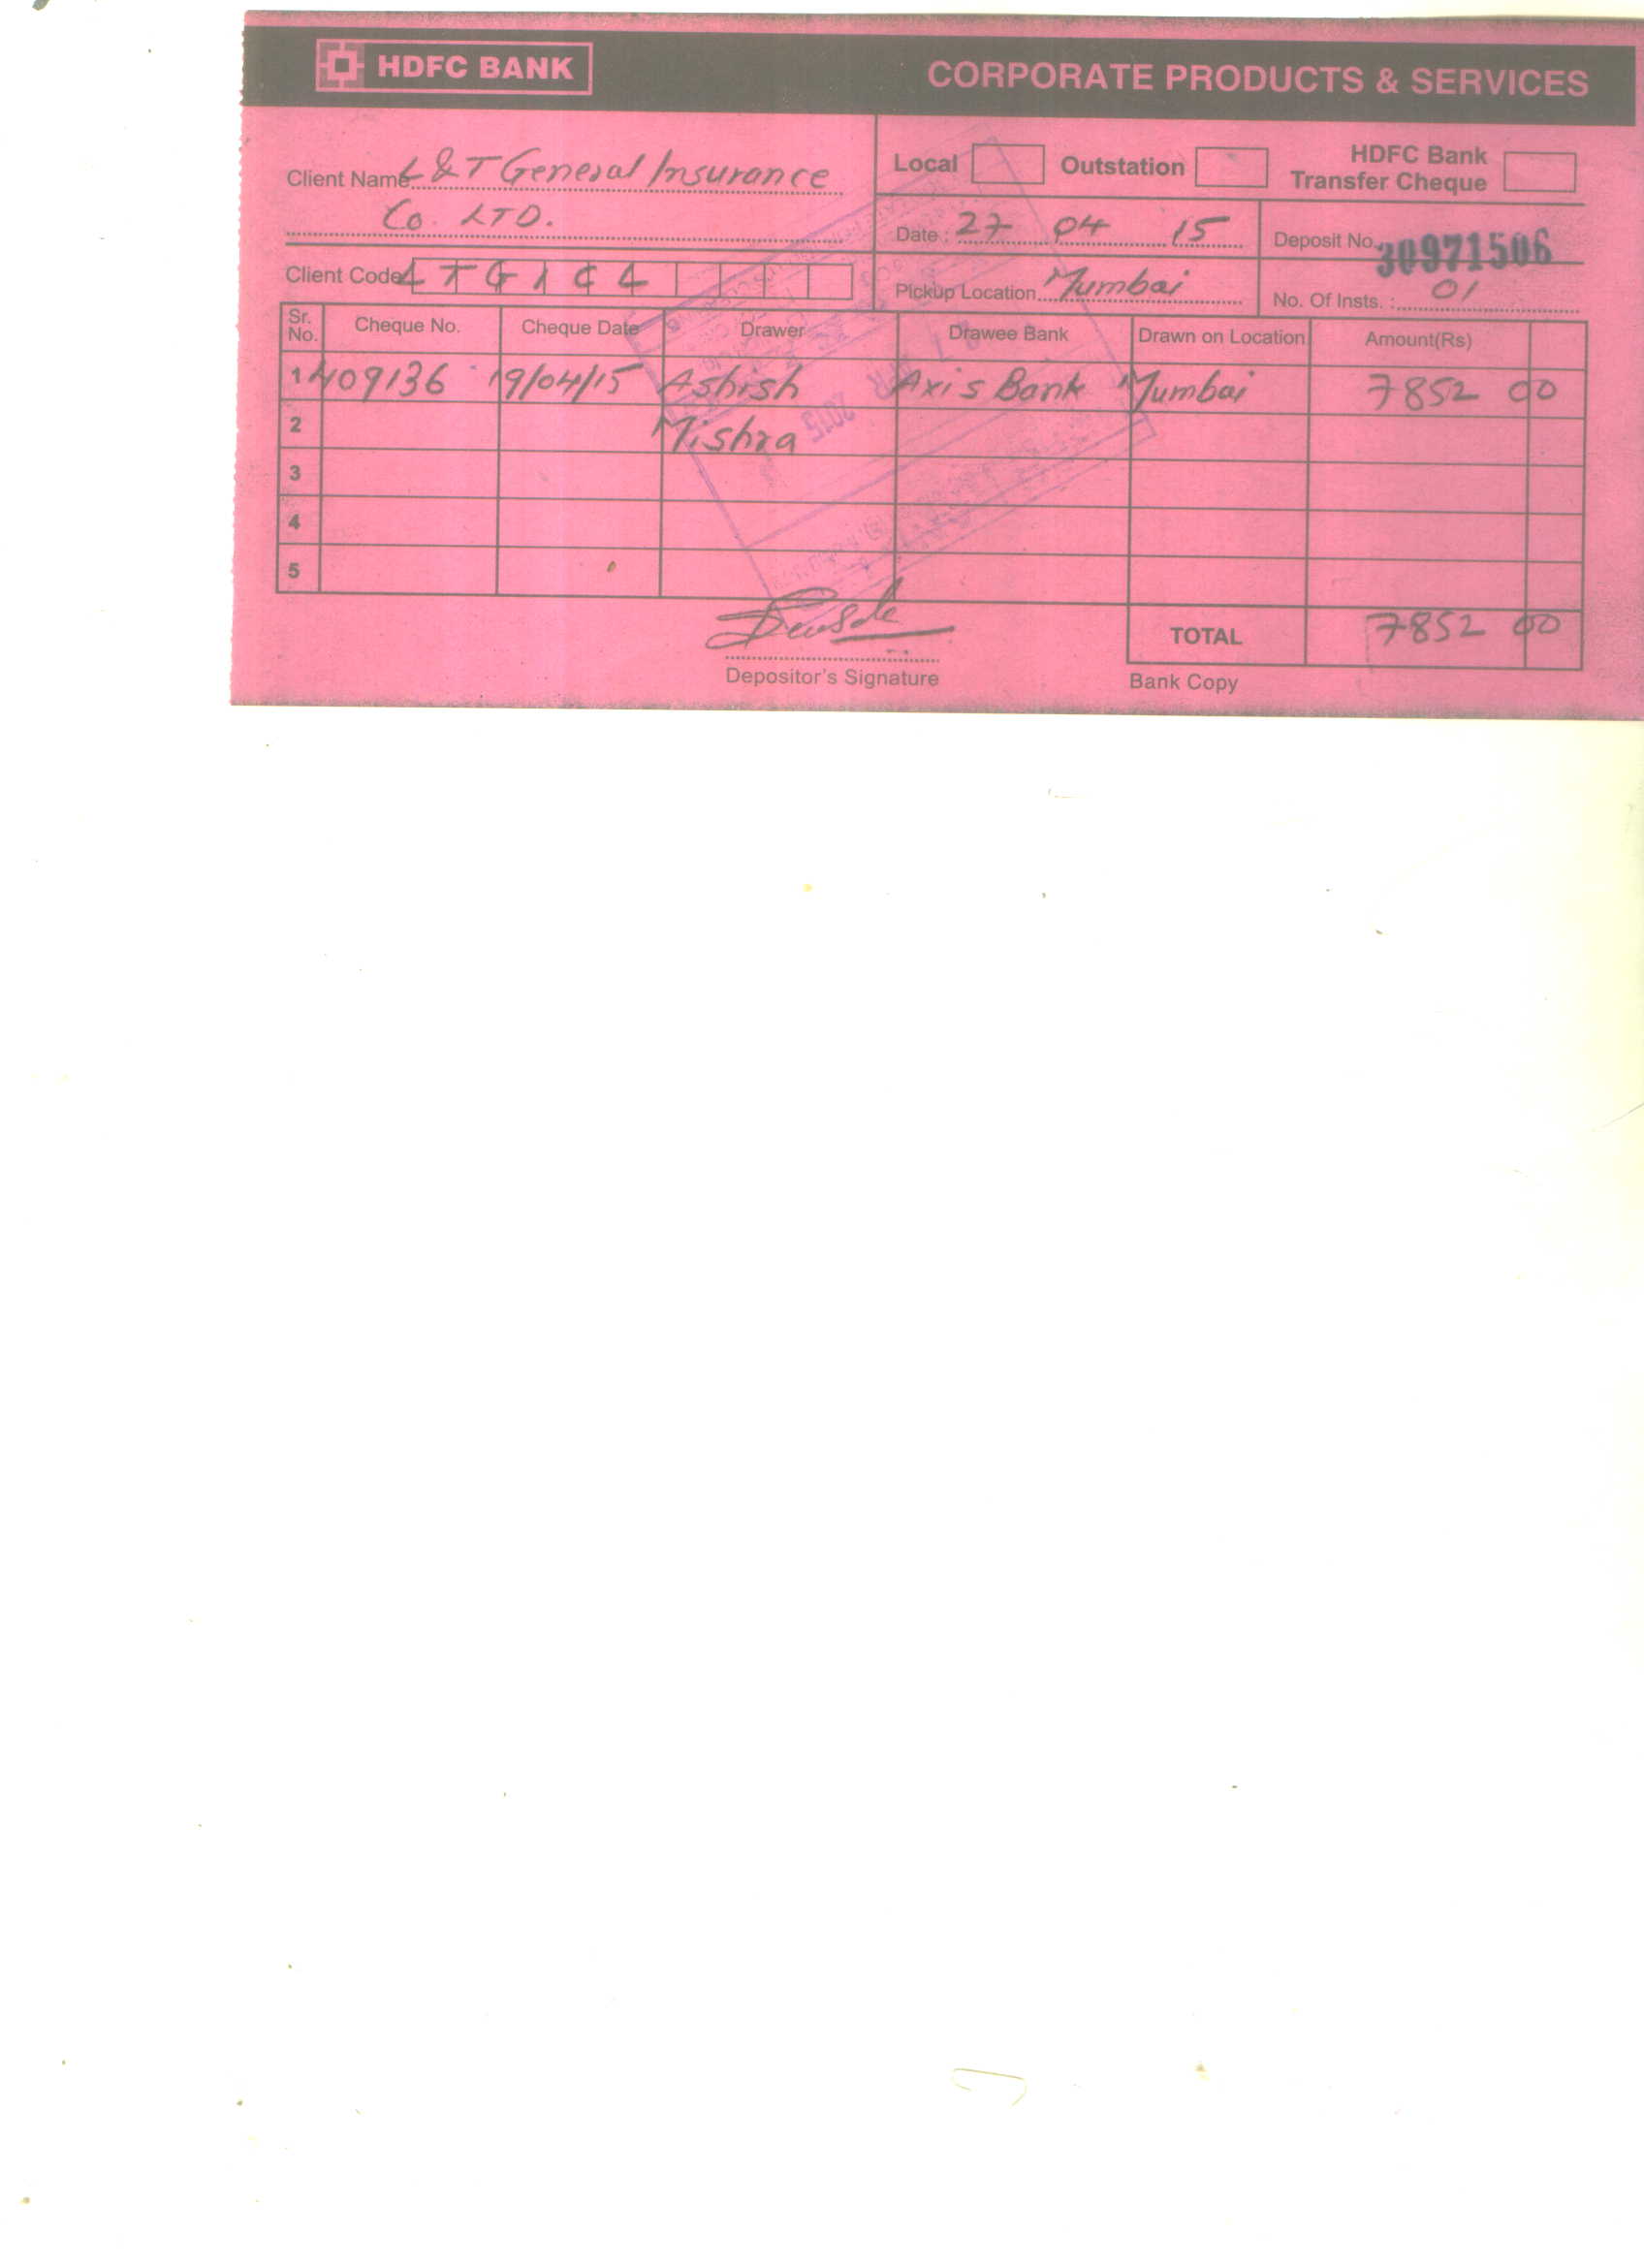 HDFC BANK
CORPORATE PRODUCTS & SERVICES
Client Name L & T General Insurance
Co. LTD.
Local
Outstation
HDFC Bank
Transfer Cheque
Date : 27 04 15
Deposit No. 30971506
Client Code L T G I C L
Pickup Location Mumbai
No. Of Insts. : 01
Sr. No. Cheque No. Cheque Date Drawer Drawee Bank Drawn on Location Amount(Rs)
1 409136 19/04/15 Ashish Axis Bank Mumbai 7852 00
2 Mishra
3
4
5
TOTAL 7852 00
Depositor's Signature
Bank Copy
2015